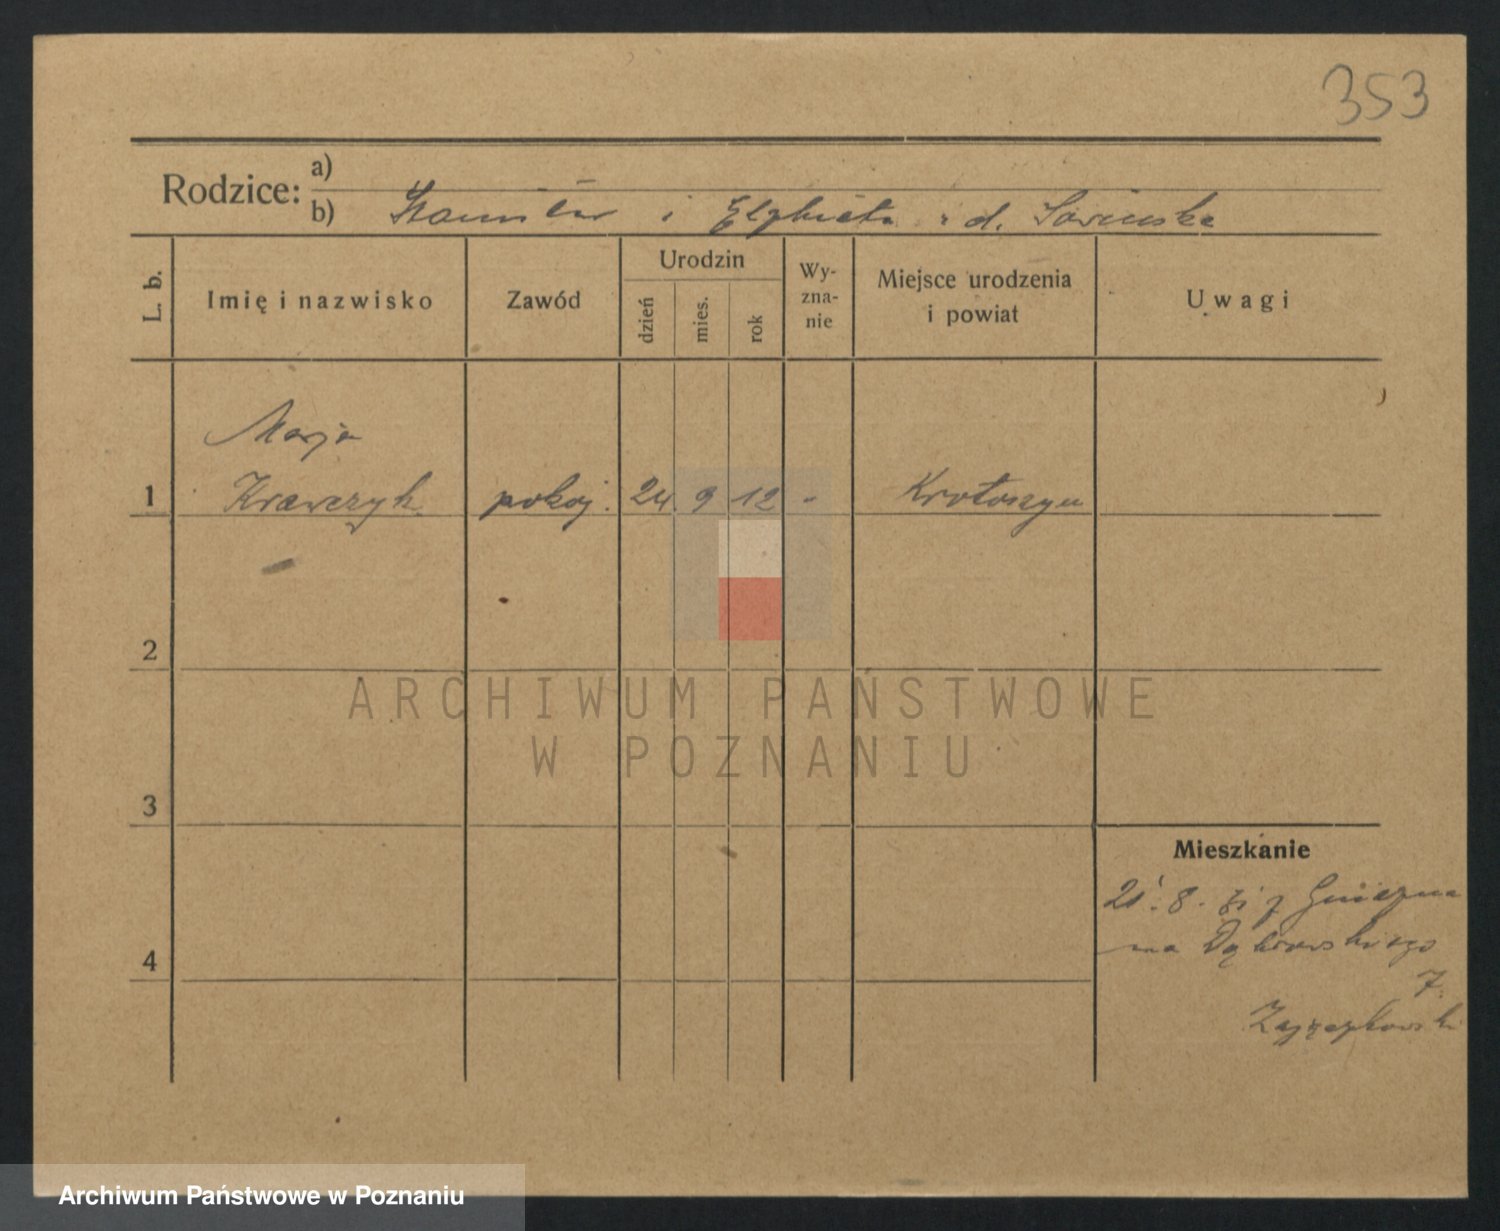 353
Rodzice: a)
b) Stanisław i Elżbieta z d.
L. b.
Imię i nazwisko
Zawód
Urodzin
dzień
mies.
rok
Wy-
zna-
nie
Miejsce urodzenia
i powiat
Uwagi
Marja
1 Krawczyk pokoj. 24 9 12 - Krotoszyn
2
ARCHIWUM PAŃSTWOWE
W POZNANIU
3
Mieszkanie
8. z Gniezna
na Dąbrowskiego
7.
4
Archiwum Państwowe w Poznaniu